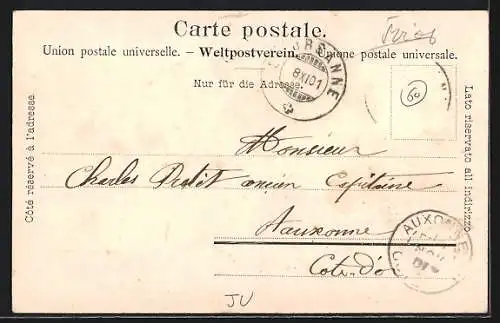 Carte postale.
Union postale universelle. – Weltpostverein. – Unione postale universale.
Nur für die Adresse.
8 XI 01
60
Côté réservé à l'adresse.
Lato riservato all' indirizzo.
Monsieur
Charles ancien Capitaine
Auxonne
Côte-d'or
AUXONNE
JU